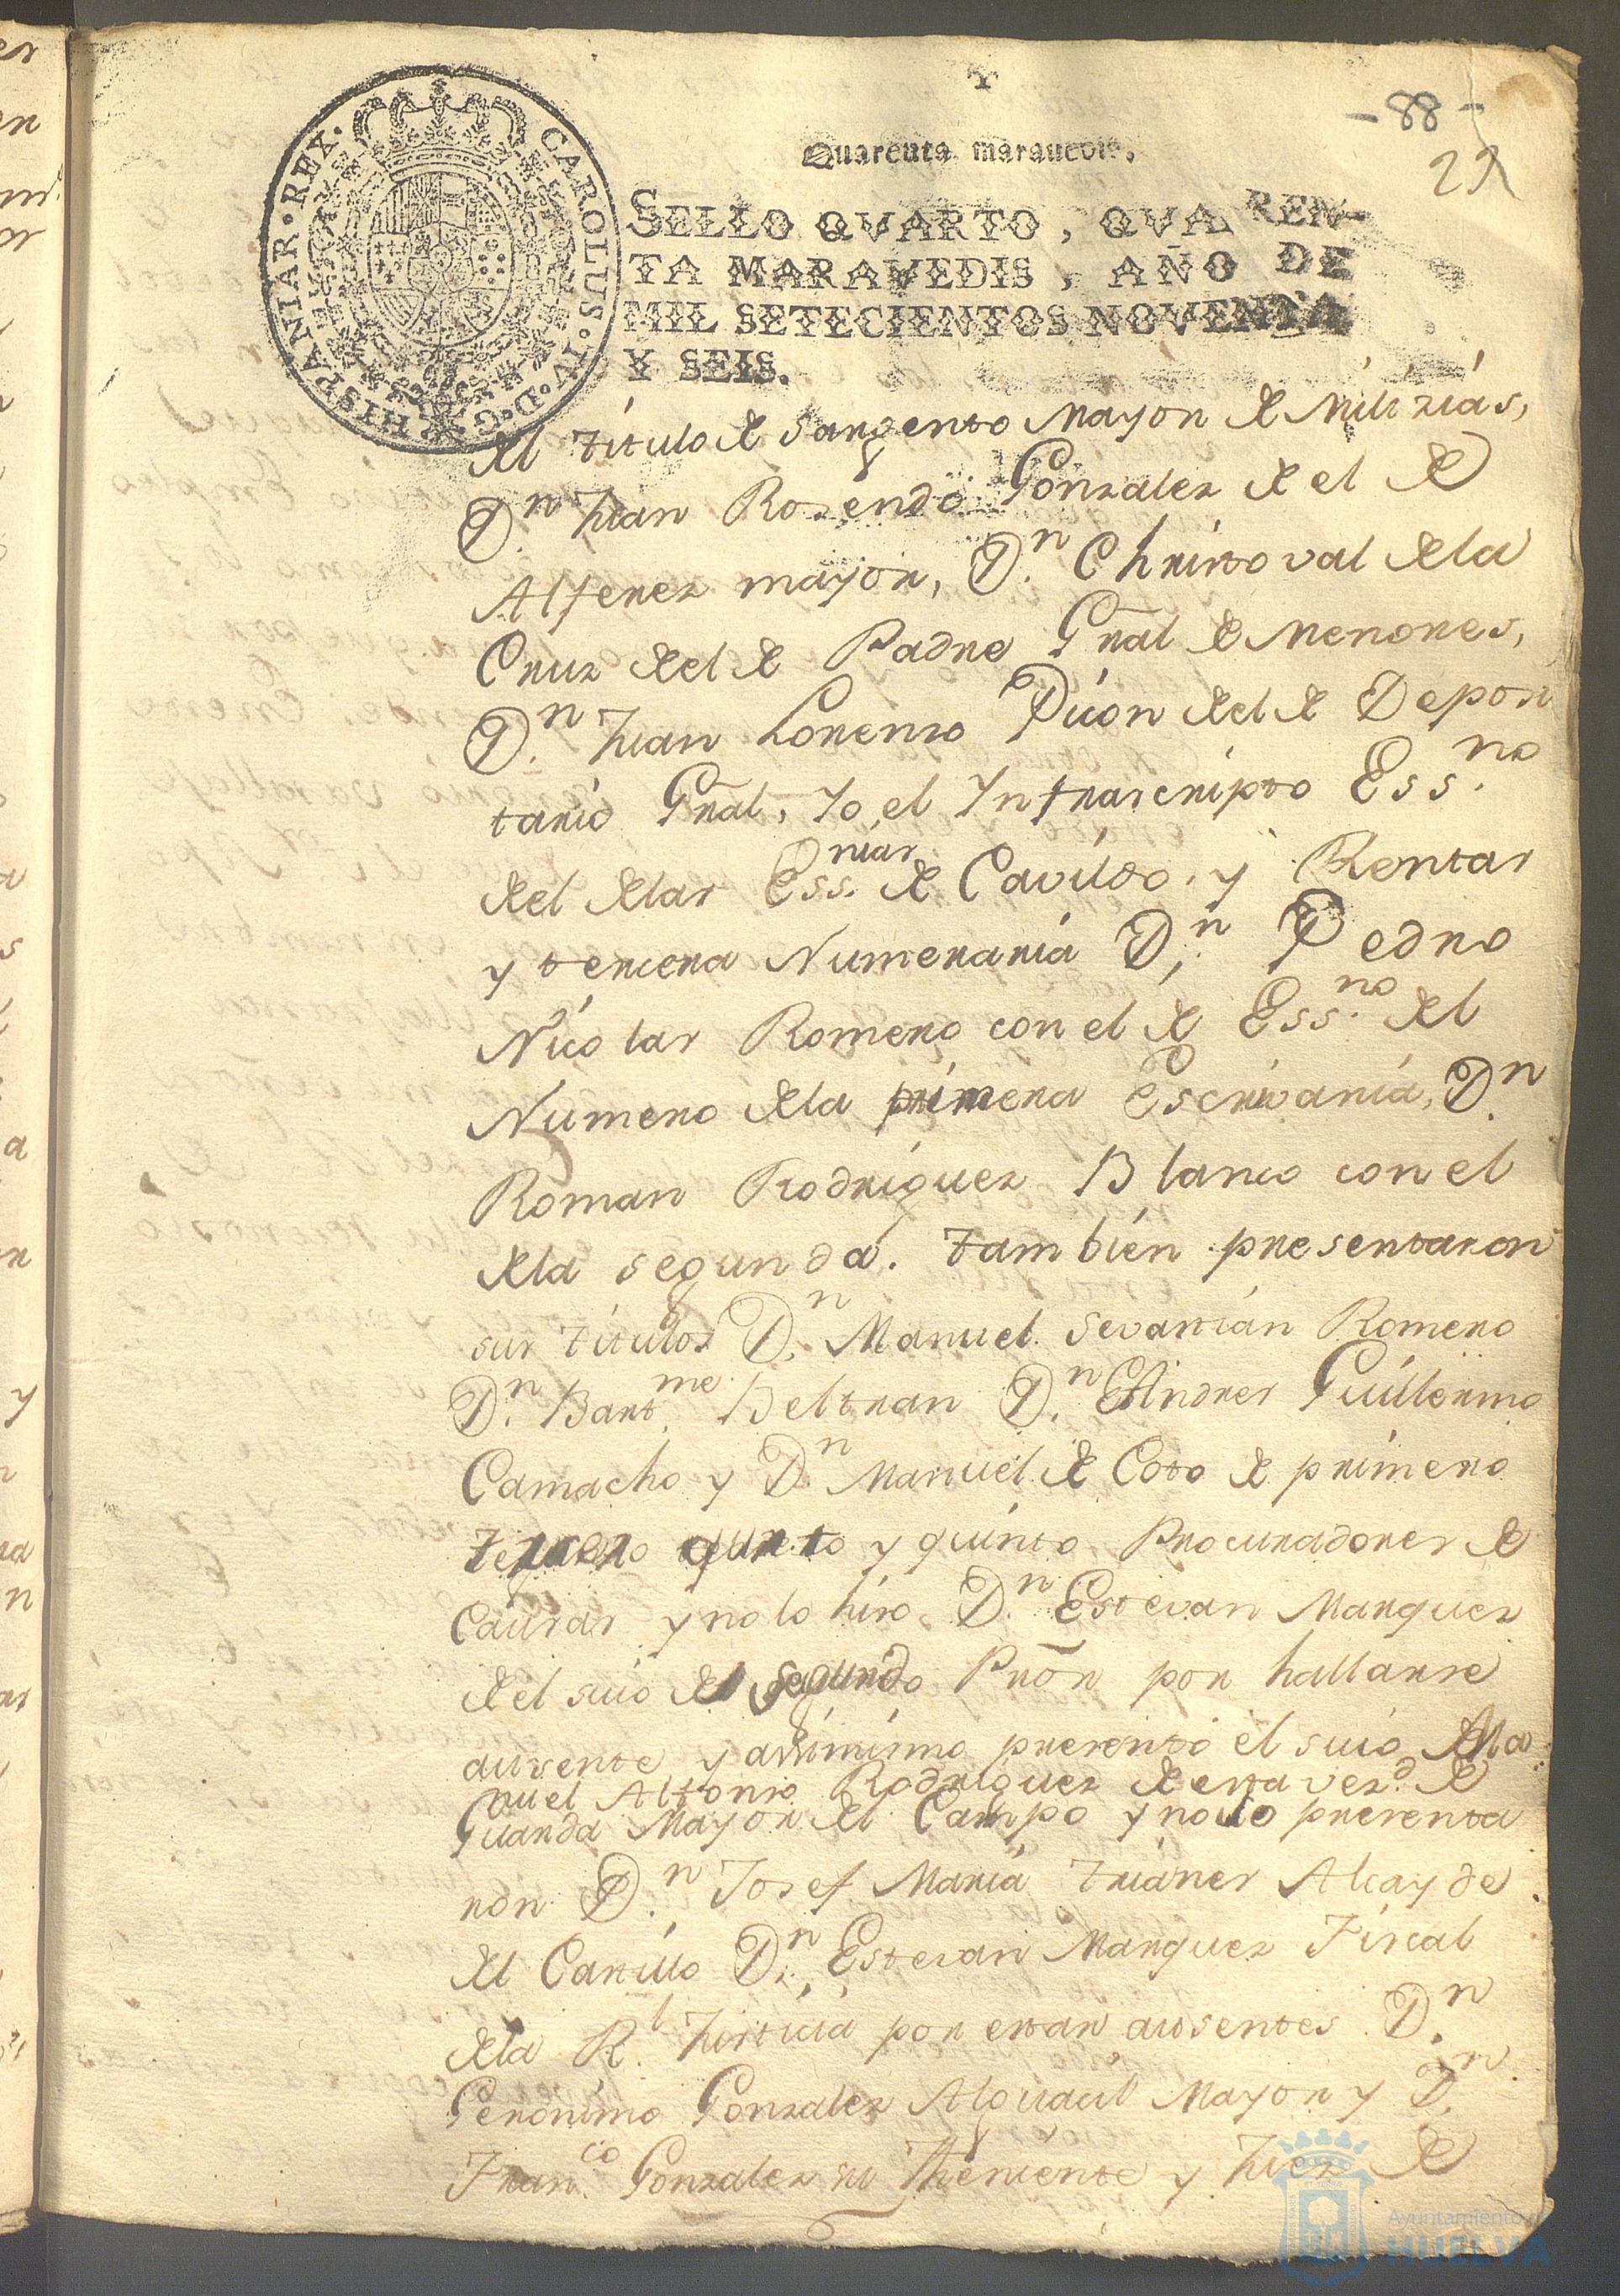 -88-
22
Quarenta maravedis.
SELLO QVARTO, QVAREN-
TA MARAVEDIS, AÑO DE
MIL SETECIENTOS NOVENTA
Y SEIS.
CAROLUS·IV·D·G·HISPANIAR·REX·
del titulo de Sargento Mayor de Milizias,
Dn. Juan Rosendo Gonzalez de el de
Alferez mayor, Dn. Christoval dela
Cruz del de Padre Gñal de Menores,
Dn. Juan Lorenzo Picon del de Deposi
tario Gñal, Yo el Infrascripto Essno.
del delas Essnias. de Cavildo, y Rentas
y tercera Numeraria Dn. Pedro
Nicolas Romero con el de Essno. del
Numero dela primera Escrivania, Dn.
Roman Rodriguez Blanco con el
dela segunda. tambien presentaron
sus titulos Dn. Manuel Sevastian Romero
Dn. Bartme. Beltran Dn. Andres Guillermo
Camacho y Dn. Manuel de Coto de primero
tercero quarto y quinto Procuradores de
Causas y no lo hizo Dn. Estevan Marquez
del suio de segundo Prõr por hallarse
ausente y assimismo presentó el suio Ma
nuel Alfonso Rodriguez de esta vezd. de
Guarda Mayor del Campo y no lo presenta
ron Dn. Josef Maria Trianes Alcayde
del Castillo Dn. Estevan Marquez Fiscal
dela Rl. Justicia por estar ausentes Dn.
Geronimo Gonzalez Alguacil Mayor y Dn.
Franco. Gonzalez su Theniente y Juez de
Ayuntamiento de
HUELVA